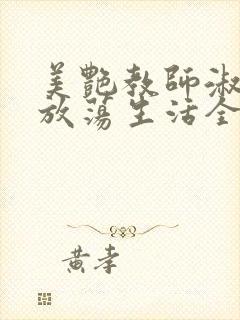 美艷教師淑
放蕩生活全
黄李